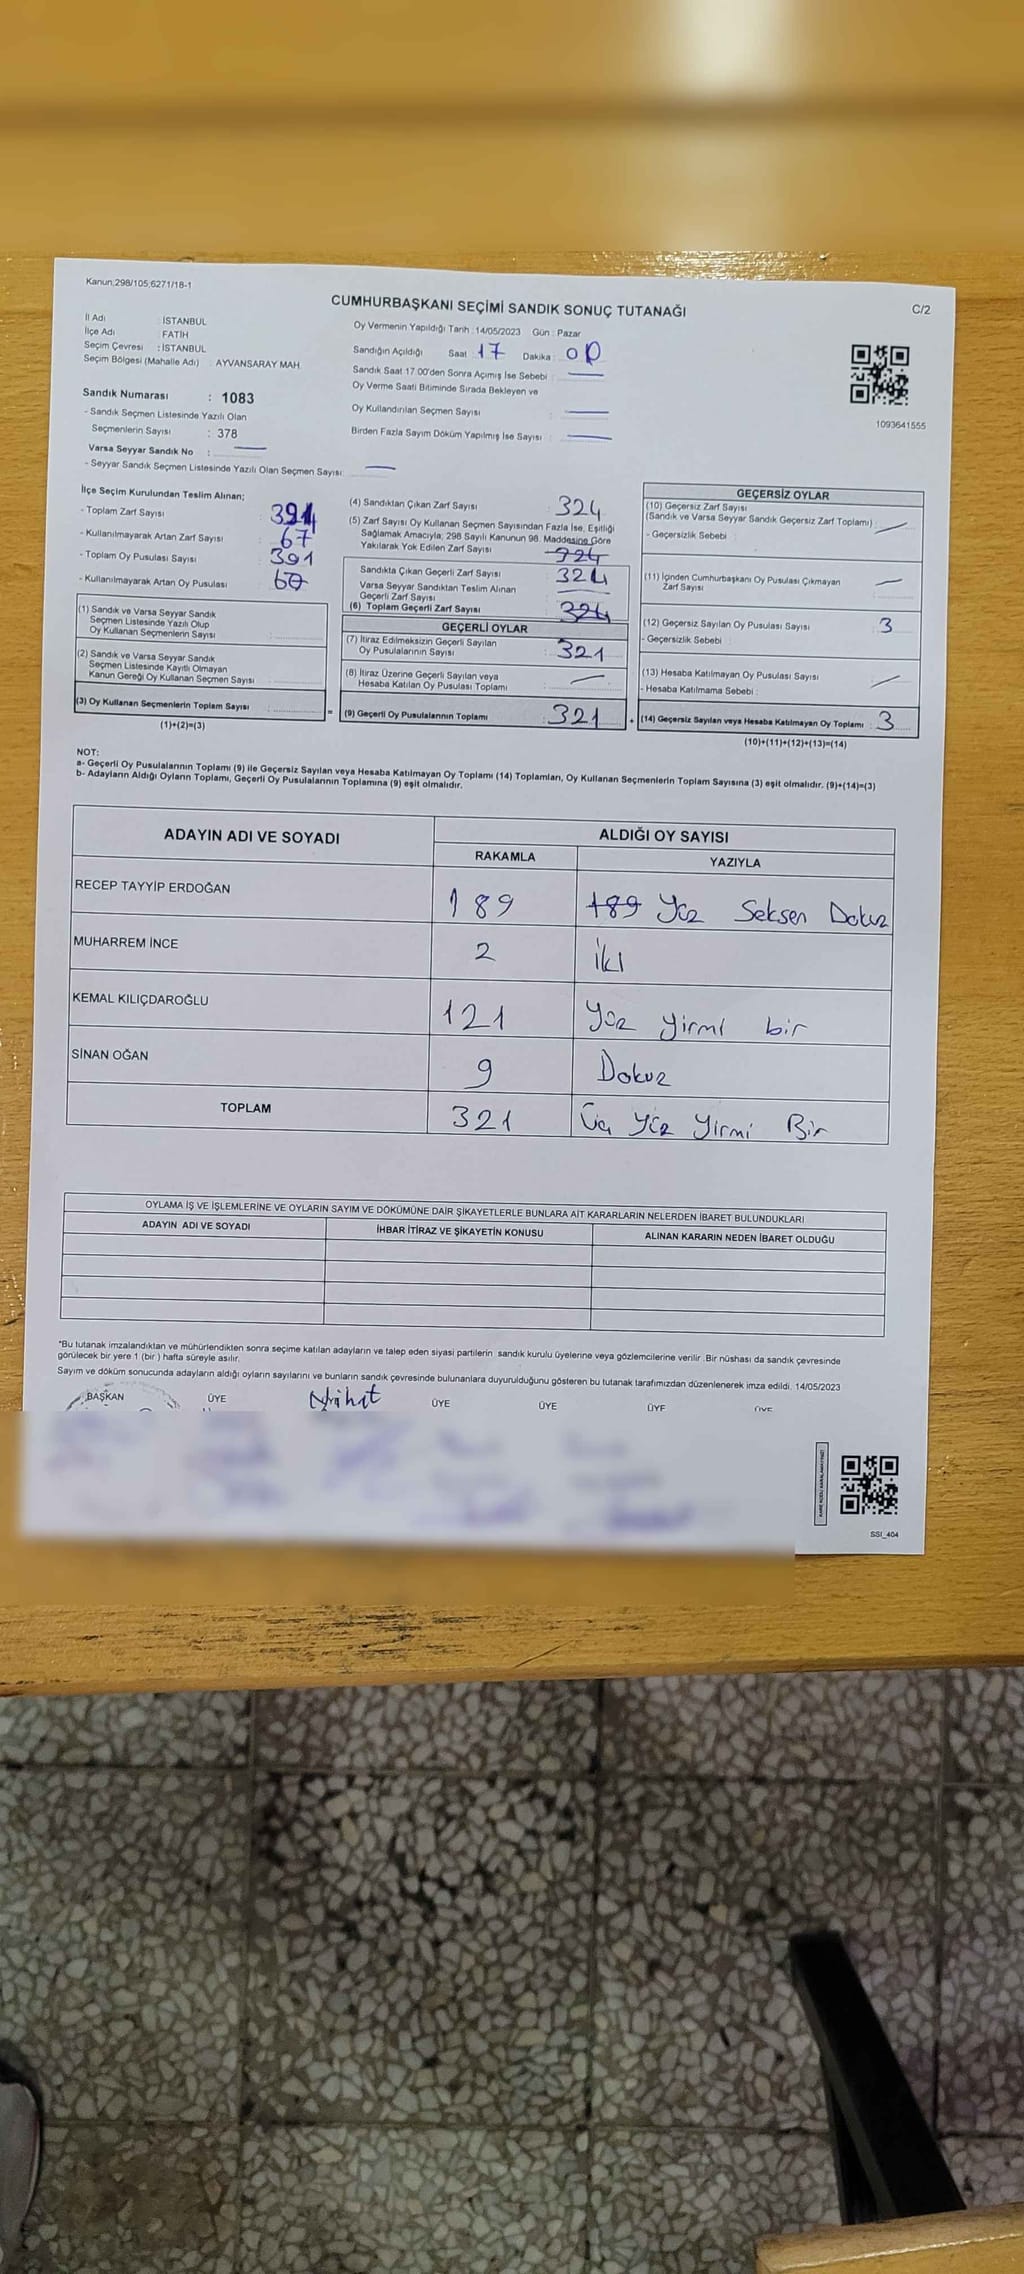 Kanun;298/105;6271/18-1
CUMHURBAŞKANI SEÇİMİ SANDIK SONUÇ TUTANAĞI
C/2
İl Adı : İSTANBUL
İlçe Adı : FATİH
Seçim Çevresi : İSTANBUL
Seçim Bölgesi (Mahalle Adı) : AYVANSARAY MAH.
Oy Vermenin Yapıldığı Tarih : 14/05/2023 Gün : Pazar
Sandığın Açıldığı Saat : 17 Dakika :
Sandık Saat 17:00'den Sonra Açımış İse Sebebi :
Oy Verme Saati Bitiminde Sırada Bekleyen ve
Oy Kullandırılan Seçmen Sayısı :
Birden Fazla Sayım Döküm Yapılmış İse Sayısı :
1093641555
Sandık Numarası : 1083
- Sandık Seçmen Listesinde Yazılı Olan
Seçmenlerin Sayısı : 378
Varsa Seyyar Sandık No :
- Seyyar Sandık Seçmen Listesinde Yazılı Olan Seçmen Sayısı:
İlçe Seçim Kurulundan Teslim Alınan;
- Toplam Zarf Sayısı : 391
- Kullanılmayarak Artan Zarf Sayısı : 67
- Toplam Oy Pusulası Sayısı : 391
- Kullanılmayarak Artan Oy Pusulası : 67
(1) Sandık ve Varsa Seyyar Sandık
Seçmen Listesinde Yazılı Olup
Oy Kullanan Seçmenlerin Sayısı :
(2) Sandık ve Varsa Seyyar Sandık
Seçmen Listesinde Kayıtlı Olmayan
Kanun Gereği Oy Kullanan Seçmen Sayısı :
(3) Oy Kullanan Seçmenlerin Toplam Sayısı :
(1)+(2)=(3)
(4) Sandıktan Çıkan Zarf Sayısı : 324
(5) Zarf Sayısı Oy Kullanan Seçmen Sayısından Fazla İse, Eşitliği
Sağlamak Amacıyla; 298 Sayılı Kanunun 98. Maddesine Göre
Yakılarak Yok Edilen Zarf Sayısı : 324
Sandıkta Çıkan Geçerli Zarf Sayısı : 324
Varsa Seyyar Sandıktan Teslim Alınan
Geçerli Zarf Sayısı :
(6) Toplam Geçerli Zarf Sayısı : 324
GEÇERLİ OYLAR
(7) İtiraz Edilmeksizin Geçerli Sayılan
Oy Pusulalarının Sayısı : 321
(8) İtiraz Üzerine Geçerli Sayılan veya
Hesaba Katılan Oy Pusulası Toplamı :
(9) Geçerli Oy Pusulalarının Toplamı : 321
GEÇERSİZ OYLAR
(10) Geçersiz Zarf Sayısı
(Sandık ve Varsa Seyyar Sandık Geçersiz Zarf Toplamı) :
- Geçersizlik Sebebi :
(11) İçinden Cumhurbaşkanı Oy Pusulası Çıkmayan
Zarf Sayısı :
(12) Geçersiz Sayılan Oy Pusulası Sayısı : 3
- Geçersizlik Sebebi :
(13) Hesaba Katılmayan Oy Pusulası Sayısı :
- Hesaba Katılmama Sebebi :
(14) Geçersiz Sayılan veya Hesaba Katılmayan Oy Toplamı : 3
(10)+(11)+(12)+(13)=(14)
NOT:
a- Geçerli Oy Pusulalarının Toplamı (9) ile Geçersiz Sayılan veya Hesaba Katılmayan Oy Toplamı (14) Toplamları, Oy Kullanan Seçmenlerin Toplam Sayısına (3) eşit olmalıdır. (9)+(14)=(3)
b- Adayların Aldığı Oyların Toplamı, Geçerli Oy Pusulalarının Toplamına (9) eşit olmalıdır.
ADAYIN ADI VE SOYADI
ALDIĞI OY SAYISI
RAKAMLA
YAZIYLA
RECEP TAYYİP ERDOĞAN 189 189 Yüz Seksen Dokuz
MUHARREM İNCE 2 İki
KEMAL KILIÇDAROĞLU 121 Yüz yirmi bir
SİNAN OĞAN 9 Dokuz
TOPLAM 321 Üç Yüz Yirmi Bir
OYLAMA İŞ VE İŞLEMLERİNE VE OYLARIN SAYIM VE DÖKÜMÜNE DAİR ŞİKAYETLERLE BUNLARA AİT KARARLARIN NELERDEN İBARET BULUNDUKLARI
ADAYIN ADI VE SOYADI
İHBAR İTİRAZ VE ŞİKAYETİN KONUSU
ALINAN KARARIN NEDEN İBARET OLDUĞU
*Bu tutanak imzalandıktan ve mühürlendikten sonra seçime katılan adayların ve talep eden siyasi partilerin sandık kurulu üyelerine veya gözlemcilerine verilir. Bir nüshası da sandık çevresinde
görülecek bir yere 1 (bir) hafta süreyle asılır.
Sayım ve döküm sonucunda adayların aldığı oyların sayılarını ve bunların sandık çevresinde bulunanlara duyurulduğunu gösteren bu tutanak tarafımızdan düzenlenerek imza edildi. 14/05/2023
BAŞKAN ÜYE Nihat ÜYE ÜYE ÜYE ÜYE
SSI_404